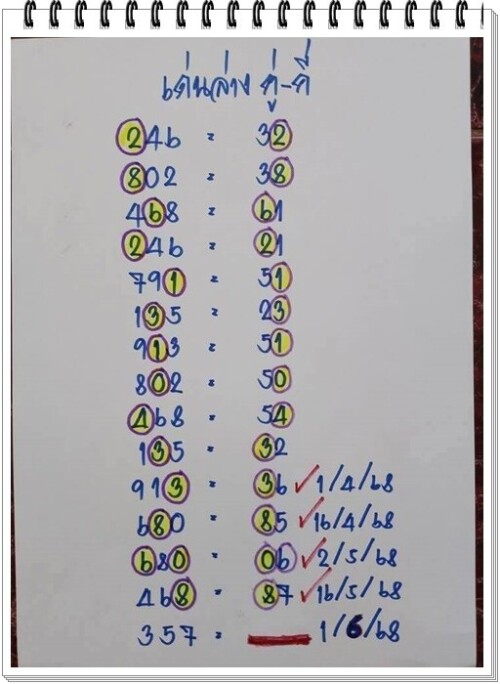 เด่นล่าง คู่-คี่
246 = 32
802 = 38
468 = 61
246 = 21
791 = 51
135 = 23
913 = 51
802 = 50
468 = 54
135 = 32
913 = 36 ✓ 1/4/68
680 = 85 ✓ 16/4/68
680 = 06 ✓ 2/5/68
468 = 87 ✓ 16/5/68
357 = 1/6/68